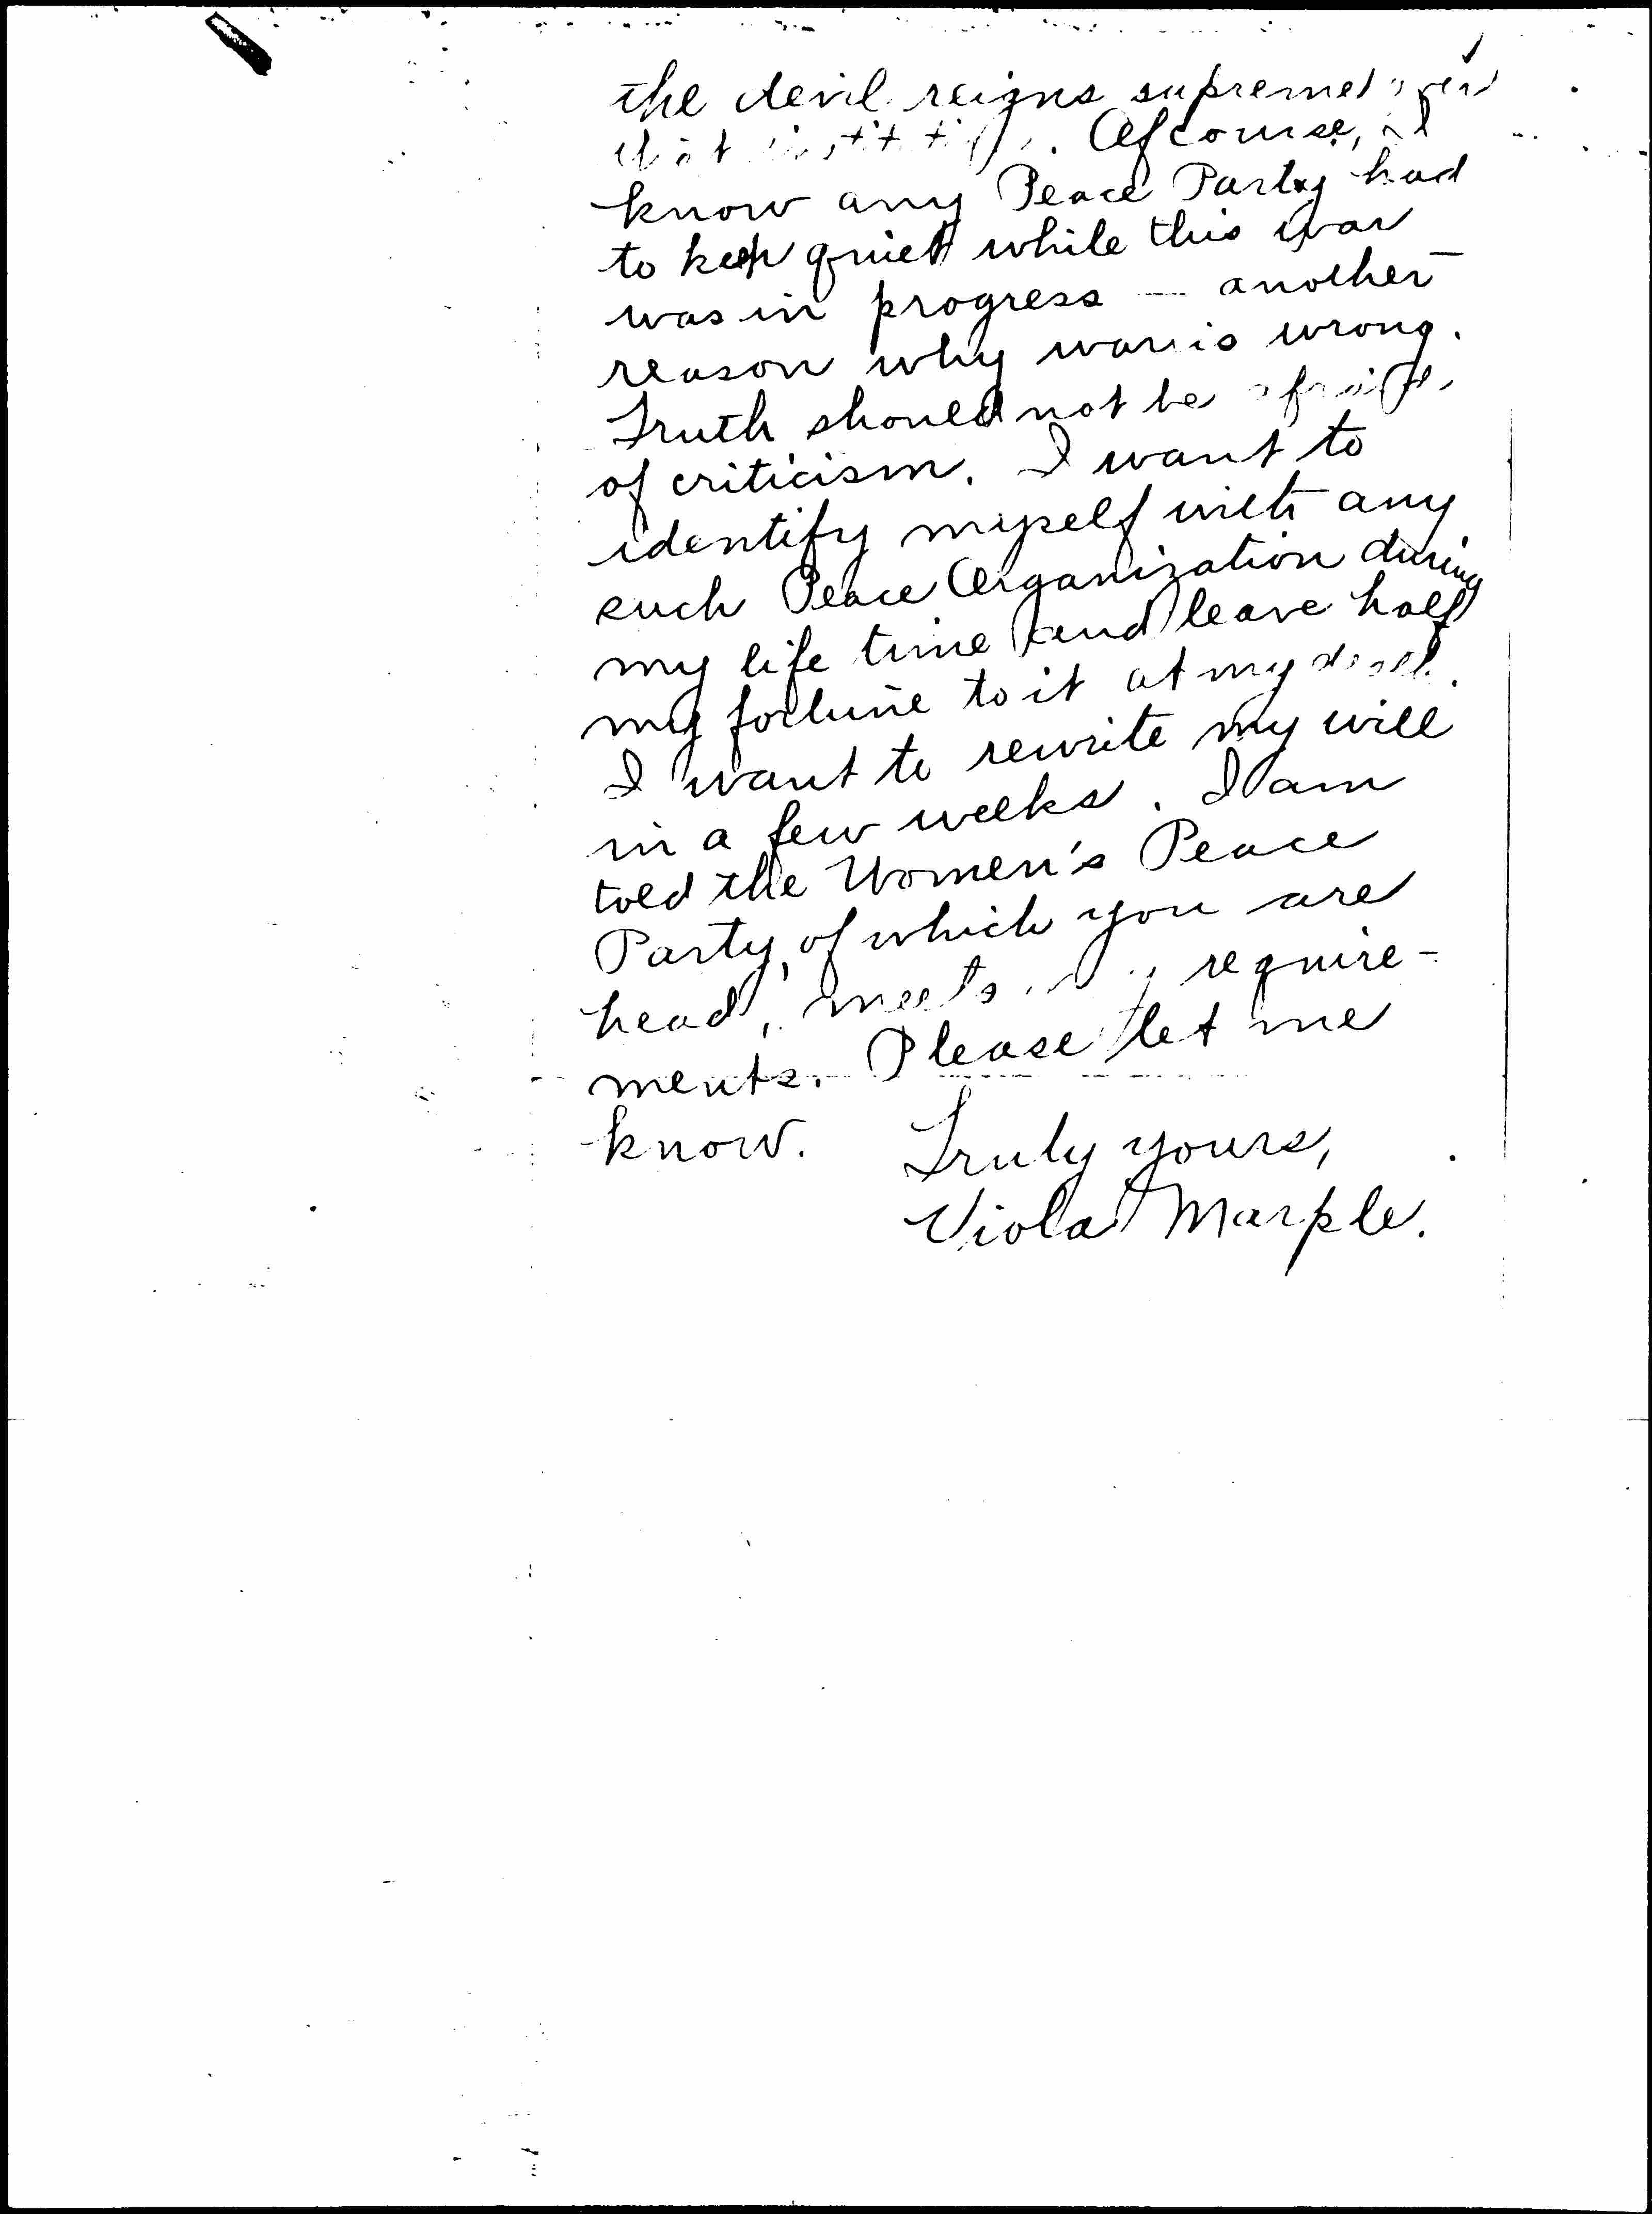 the devil reigns supreme over
that institution. Of course, I
know any Peace Party had
to keep quiet while this war
was in progress — another
reason why war is wrong.
Truth should not be afraid
of criticism. I want to
identify myself with any
such Peace Organization during
my life time and leave half
my fortune to it at my death.
I want to rewrite my will
in a few weeks. I am
told the Women's Peace
Party, of which you are
head, meets my require-
ments. Please let me
know.
Truly yours,
Viola Marple.